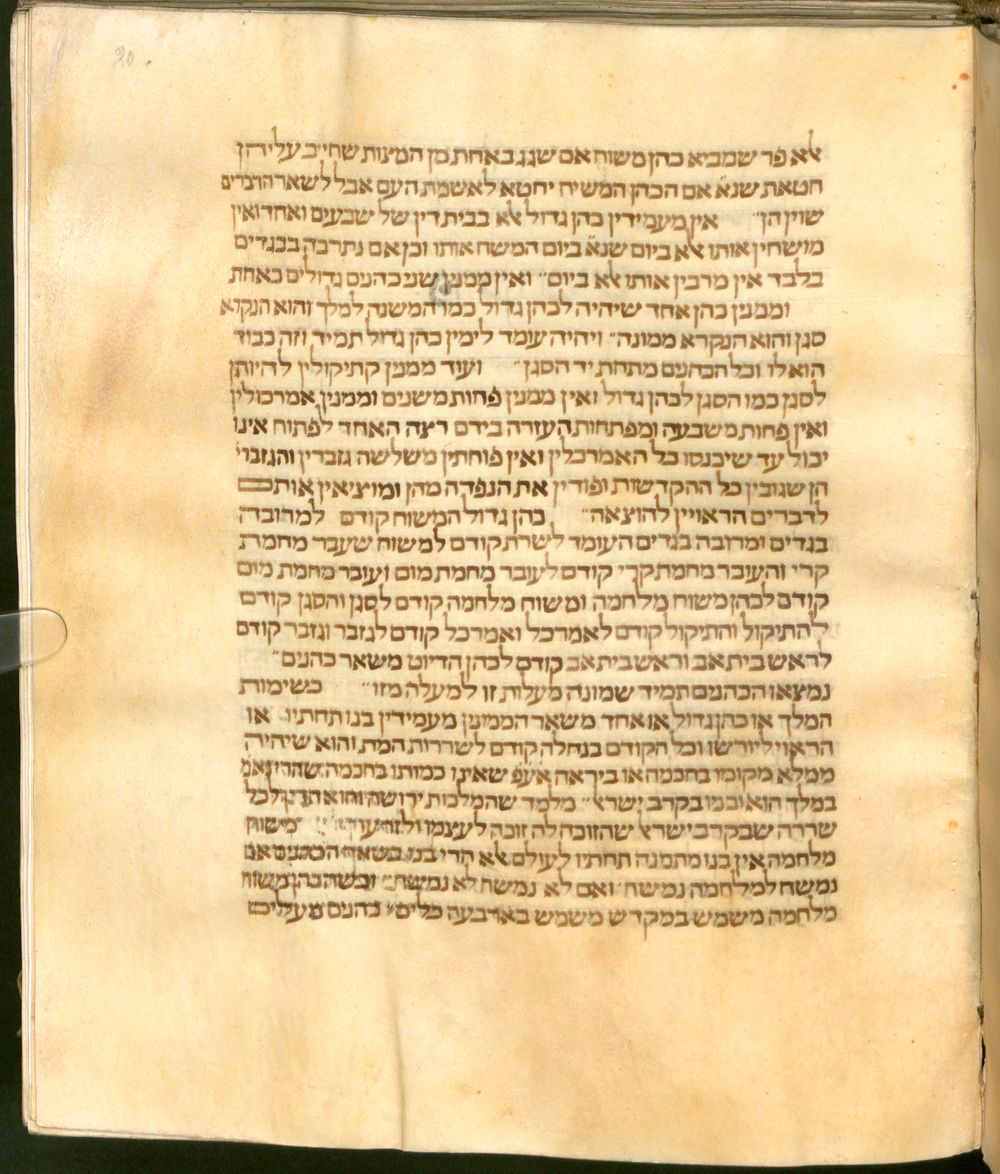 20
אלא פר שמביא כהן משוח אם שגג באחת מן המצות שחייב עליהן
חטאת שנא אם הכהן המשיח יחטא לאשמת העם אבל לשאר הדברים
שוין הן״ אין מעמידין כהן גדול אלא בבית דין של שבעים ואחד ואין
מושחין אותו אלא ביום שנא ביום המשח אותו וכן אם נתרבה בבגדים
בלבד אין מרבין אותו אלא ביום״ ואין ממנין שני כהנים גדולים כאחת
וממנין כהן אחד שיהיה לכהן גדול כמו המשנה למלך והוא הנקרא
סגן והוא הנקרא ממונה״ ויהיה עומד לימין כהן גדול תמיד וזה כבוד
הוא לו וכל הכהנים מתחת יד הסגן״ ועוד ממנין קתיקולין להיותן
לסגן כמו הסגן לכהן גדול ואין ממנין פחות משנים וממנין אמרכולין
ואין פחות משבעה ומפתחות העזרה בידם רצה האחד לפתוח אינו
יכול עד שיכנסו כל האמרכלין ואין פוחתין משלשה גזברין והגזברי׳
הן שגובין כל ההקדשות ופודין את הנפדה מהן ומוציאין אותם
לדברים הראויין להוצאה״ כהן גדול המשוח קודם למרובה
בגדים ומרובה בגדים העומד לשרת קודם למשוח שעבר מחמת
קרי והעובר מחמת קרי קודם לעובר מחמת מום ועובר מחמת מום
קודם לכהן משוח מלחמה ומשוח מלחמה קודם לסגן והסגן קודם
להתיקול והתיקול קודם לאמרכל ואמרכל קודם לגזבר וגזבר קודם
לראש בית אב וראש בית אב קודם לכהן הדיוט משאר כהנים״
נמצאו הכהנים תמיד שמונה מעלות זו למעלה מזו״ כשימות
המלך או כהן גדול או אחד משאר הממונין מעמידין בנו תחתיו או
הראוי ליורשו וכל הקודם בנחלה קודם לשררות המת והוא שיהיה
ממלא מקומו בחכמה או ביראה אעפ שאינו כמותו בחכמה שהרי נאמ
במלך הוא ובניו בקרב ישראל״ מלמד שהמלכות ירושה והוא הדין לכל
שררה שבקרב ישראל שהזוכה לה זוכה לעצמו ולזרעו משוח
מלחמה אין בנו מתמנה תחתיו לעולם אלא הרי בנו כשאר הכהנים אם
נמשח למלחמה נמשח ואם לא נמשח לא נמשח״ וכשהכהן משוח
מלחמה משמש במקדש משמש בארבעה כלים״ כהנים מעלים